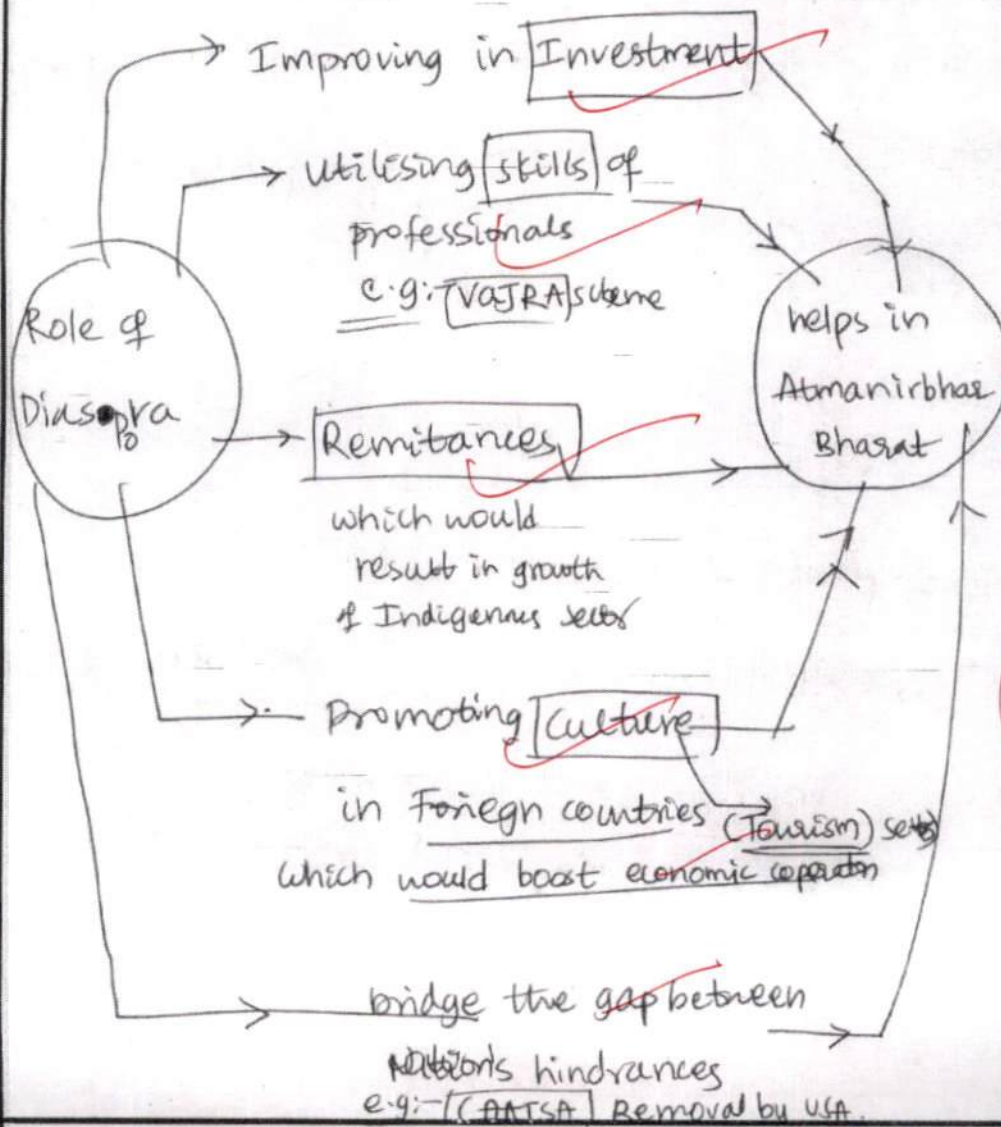 Improving in Investment
Utilising skills of
professionals
e.g:- VAJRA scheme
Role of
Diaspora
helps in
Atmanirbhar
Bharat
Remitances
which would
result in growth
of Indigenous sector
Promoting Culture
in Foriegn countries (Tourism) sector
which would boost economic coperatn
bridge the gap between
Nation's hindrances
e.g:- CAATSA Removal by USA.